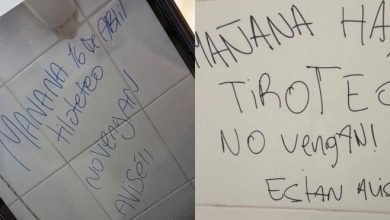 MAÑANA 16 DE ABRIL
tiroteo
NO VENGAN
AVISÉ!!
MAÑANA HA
TIROTEO
NO VENGAN!
ESTAN AVIS